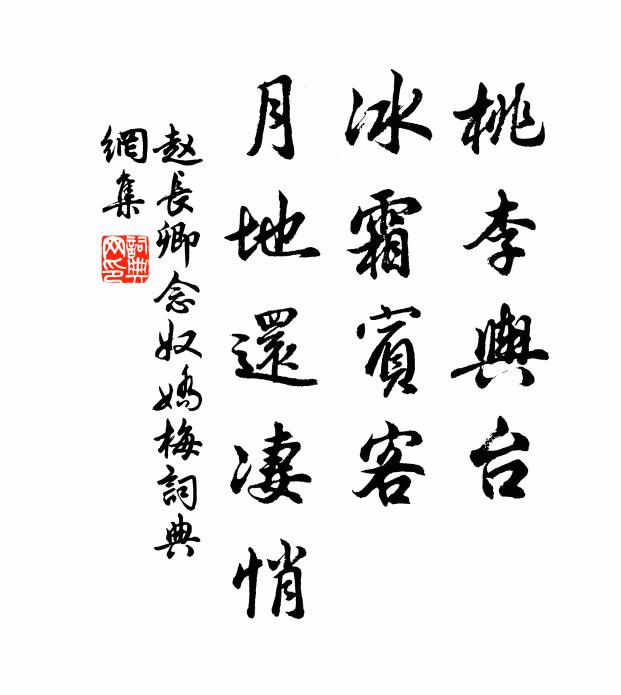 桃李輿台
冰霜賓客
月地還淒悄
赵長卿念奴嬌梅詞典
網集
詞典
网印